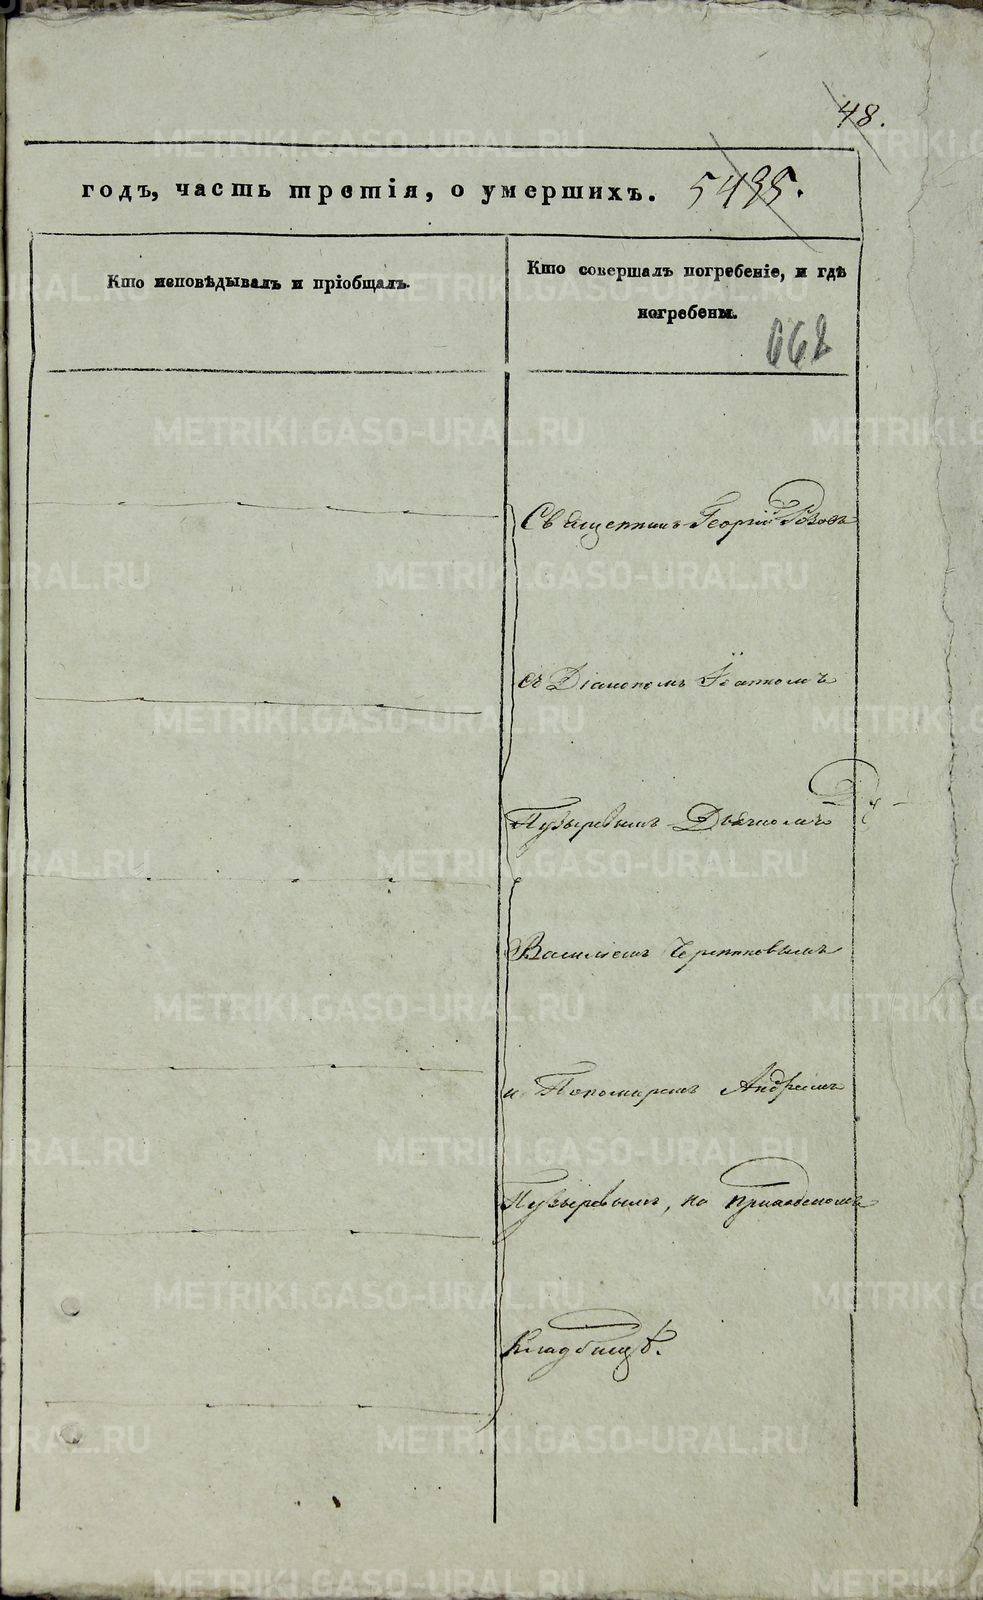 48.
годъ, часть третія, о умершихъ. 5495.
Кто исповѣдывалъ и пріобщалъ.
Кто совершалъ погребеніе, и гдѣ
погребены.
662
Священникъ Георгій
съ Діакономъ Іоанномъ
Пузыревымъ Дьячкомъ
Василіемъ
и Пономаремъ Андреемъ
Пузыревымъ, на приходскомъ
Кладбищѣ.
METRIKI.GASO-URAL.RU